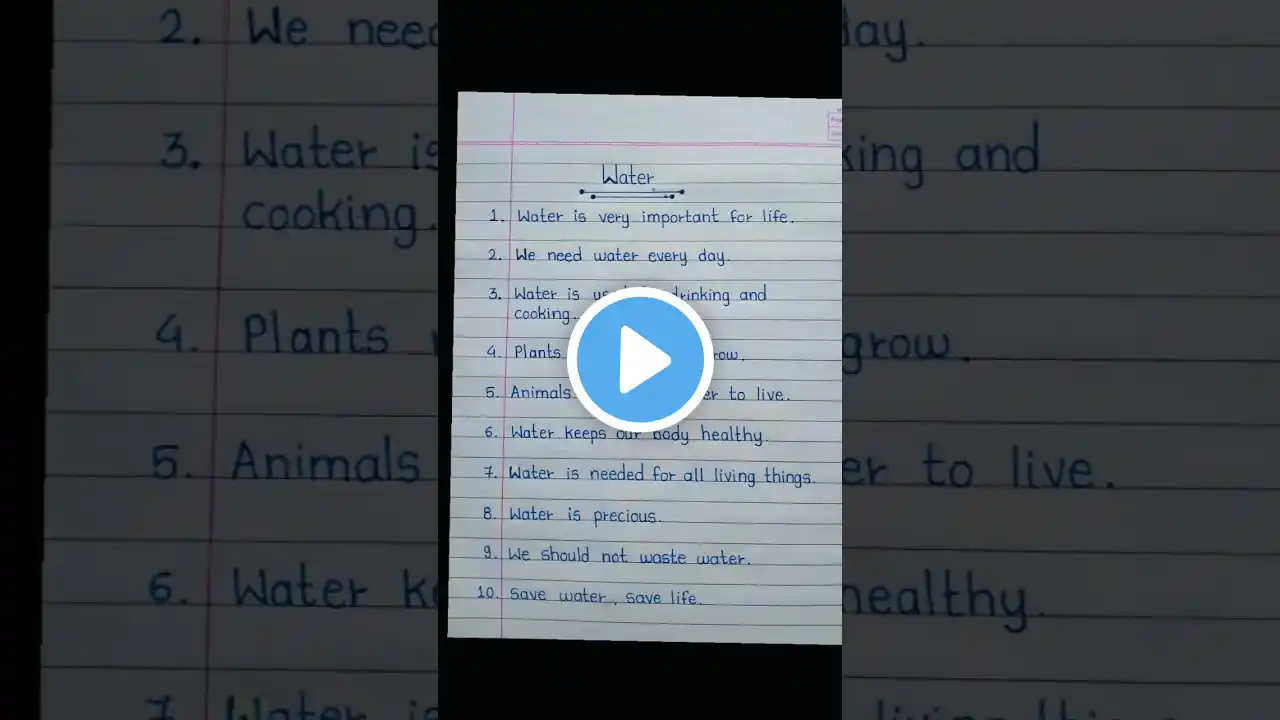 Water
1. Water is very important for life.
2. We need water every day.
3. Water is drinking and
cooking.
4. Plants grow.
5. Animals to live.
6. Water keeps our body healthy.
7. Water is needed for all living things.
8. Water is precious.
9. We should not waste water.
10. Save water, save life.